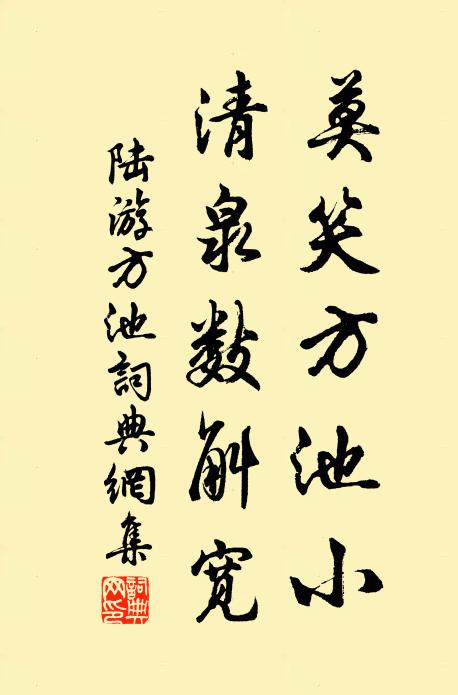 莫笑方池小
清泉数斛宽
陆游方池詞典網集
詞典网印